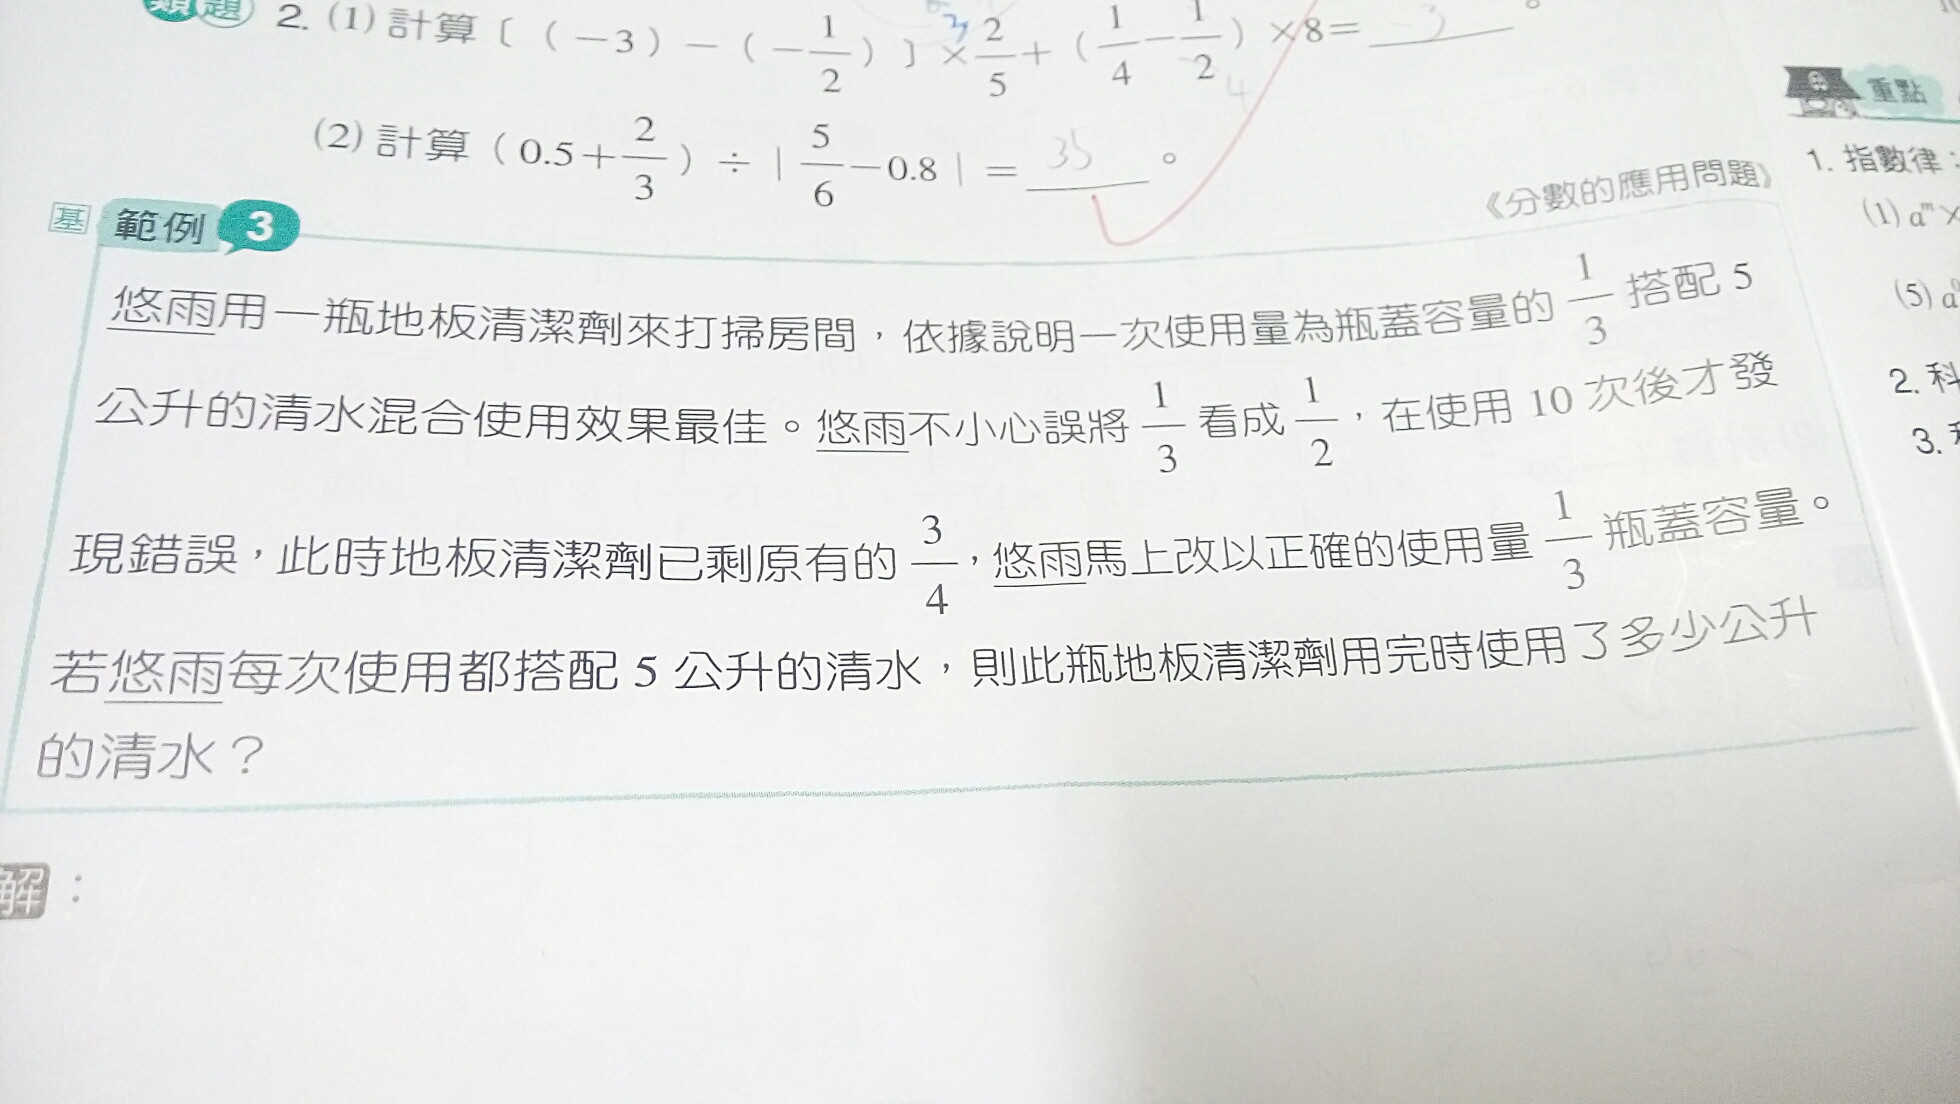 類題 2. (1) 計算〔（－3）－（－1/2）〕×2/5＋（1/4－1/2）×8＝ -3 。
(2) 計算（0.5＋2/3）÷｜5/6－0.8｜＝ 35 。
《分數的應用問題》
基 範例 3
悠雨用一瓶地板清潔劑來打掃房間，依據說明一次使用量為瓶蓋容量的 1/3 搭配 5
公升的清水混合使用效果最佳。悠雨不小心誤將 1/3 看成 1/2，在使用 10 次後才發
現錯誤，此時地板清潔劑已剩原有的 3/4，悠雨馬上改以正確的使用量 1/3 瓶蓋容量。
若悠雨每次使用都搭配 5 公升的清水，則此瓶地板清潔劑用完時使用了多少公升
的清水？
解：
重點
1. 指數律：
(1) aᵐ×
(5) a
2. 科
3.